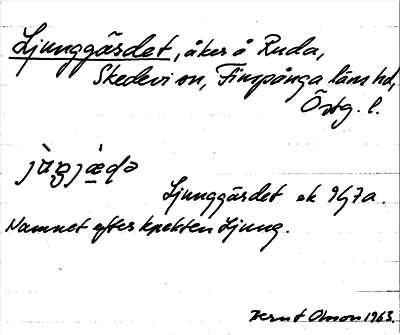 Ljunggärdet, åker å Ruda,
Skedevi sn, Finspånga läns hd,
Östg. l.
Ljunggärdet ek 9G7a.
Namnet efter txt Ljung.
Bernt Olsson 1963.